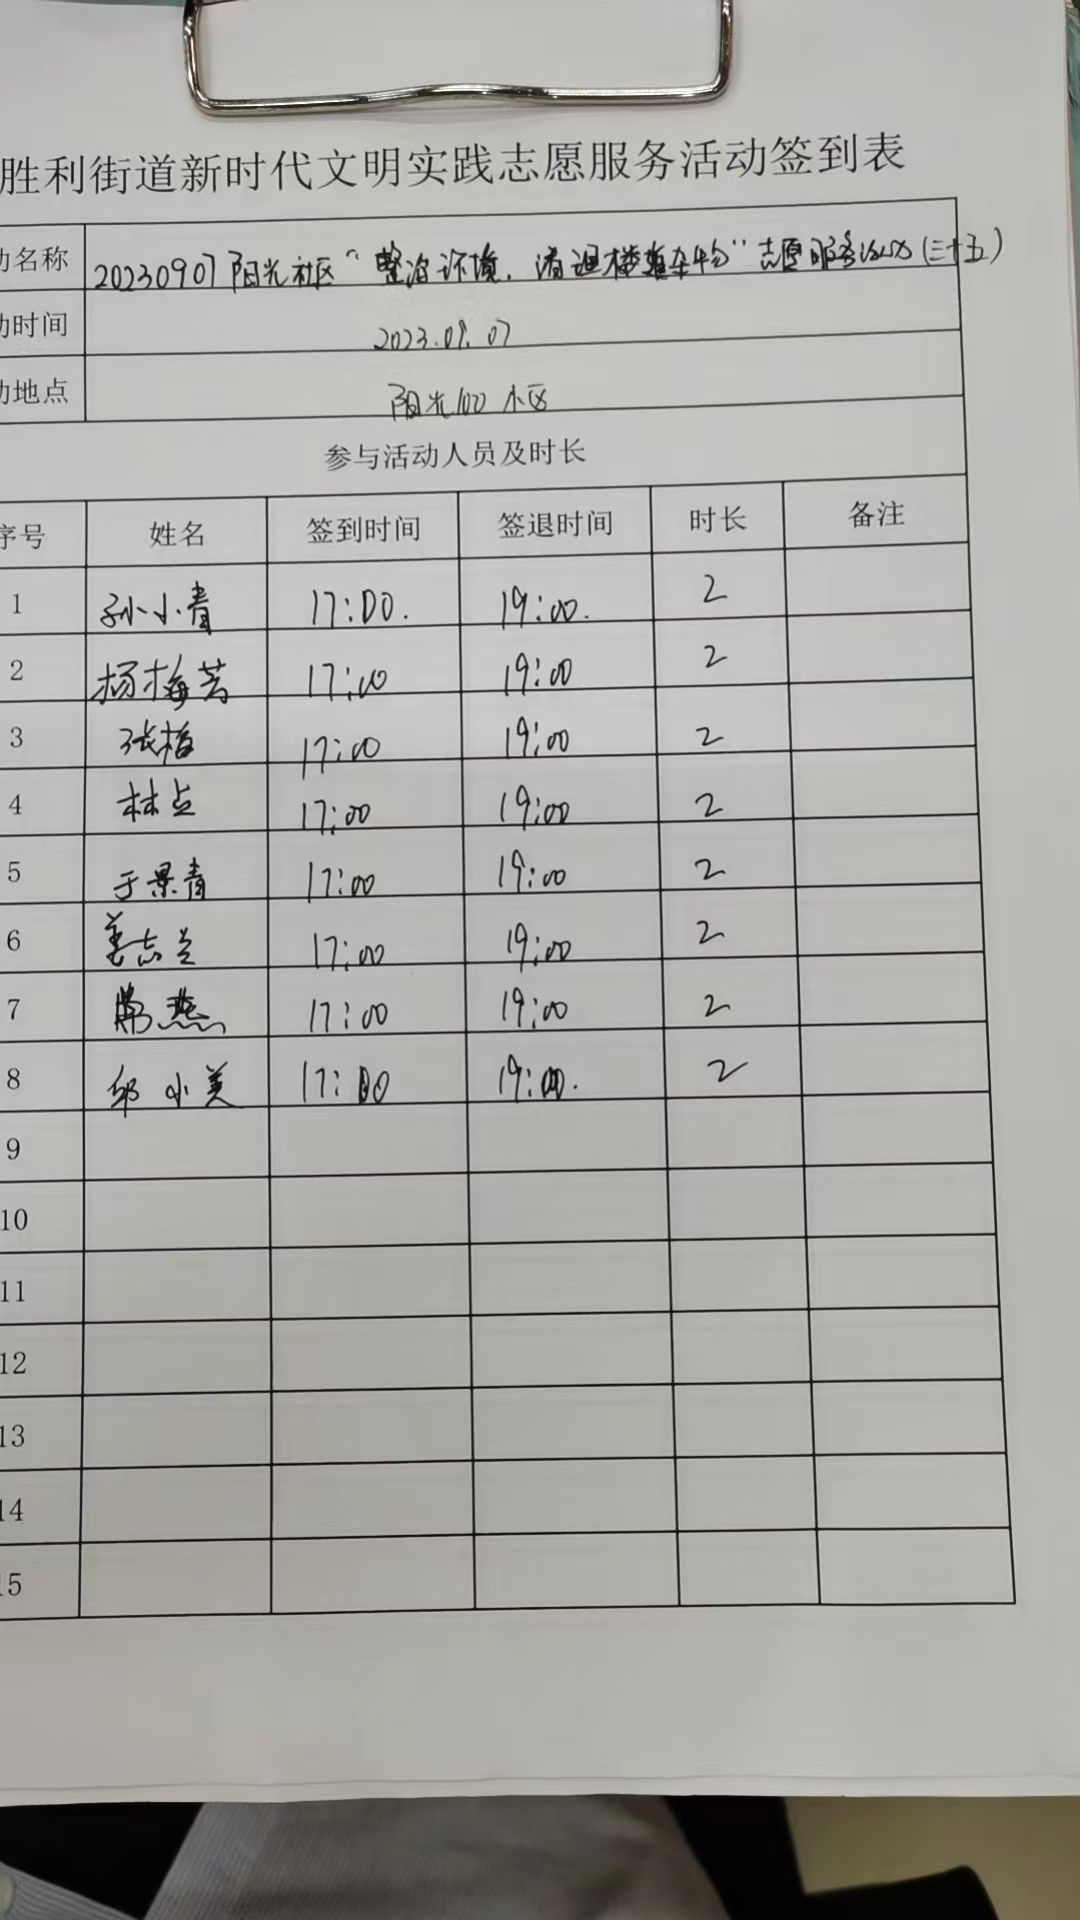 胜利街道新时代文明实践志愿服务活动签到表
动名称 20230907阳光社区“整治环境，清理楼道杂物”志愿服务活动(三十五)
动时间 2023.09.07
动地点 阳光100小区
参与活动人员及时长
序号 姓名 签到时间 签退时间 时长 备注
1 孙小青 17:00. 19:00. 2
2 杨梅芳 17:00 19:00 2
3 张梅 17:00 19:00 2
4 林点 17:00 19:00 2
5 于景青 17:00 19:00 2
6 姜志兰 17:00 19:00 2
7 燕 17:00 19:00 2
8 邱小美 17:00 19:00. 2
9
10
11
12
13
14
15